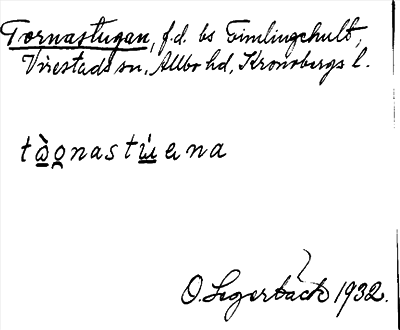 Tornastugan, f.d. bs Gimlingehult,
Virestads sn, Allbo hd, Kronobergs l.
tàǫnastɯ́ɐna
O. Segerbäck 1932.